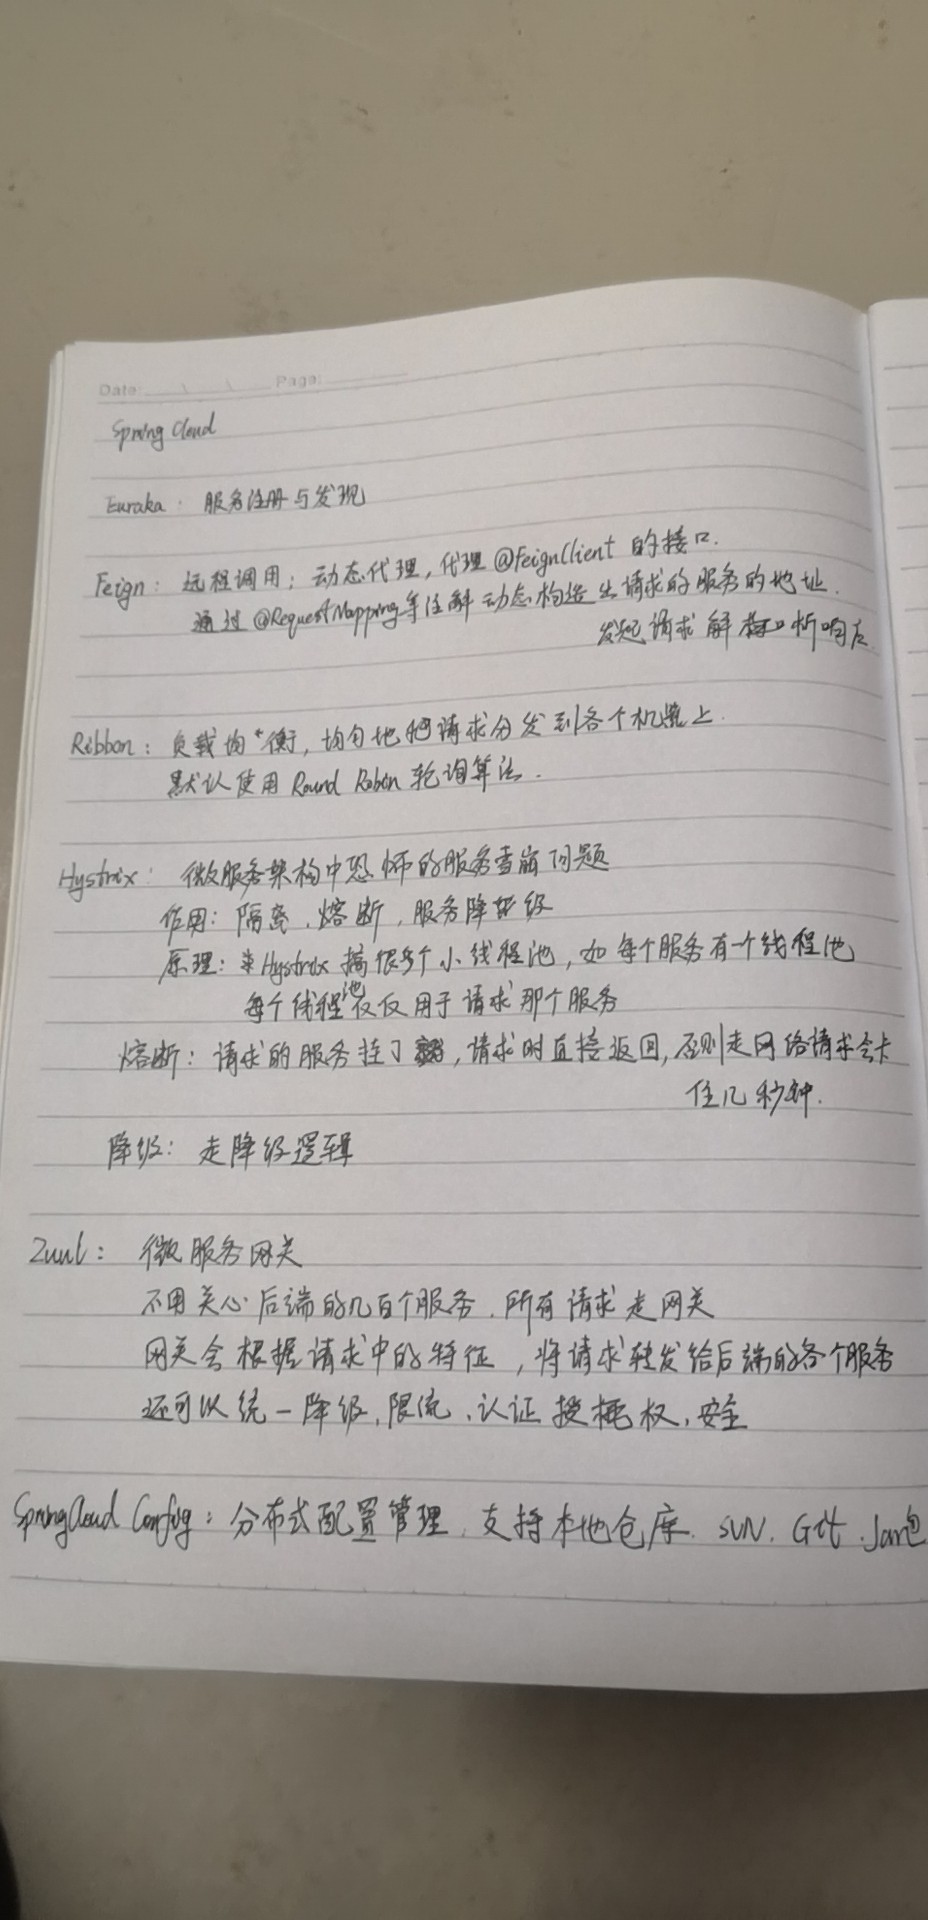 Date: Page:
Spring Cloud
Euraka: 服务注册与发现
Feign: 远程调用; 动态代理, 代理 @FeignClient 的接口.
通过 @RequestMapping等注解 动态构造出请求的服务的地址.
发起请求 解析响应
Ribbon: 负载均衡, 均匀地把请求分发到各个机器上.
默认使用 Round Robin 轮询算法.
Hystrix: 微服务架构中恐怖的服务雪崩问题
作用: 隔离、熔断, 服务降级
原理: Hystrix 搞很多个小线程池, 如每个服务有一个线程池
每个线程池仅仅用于请求那个服务
熔断: 请求的服务挂了, 请求时直接返回, 否则走网络请求会卡
住几秒钟.
降级: 走降级逻辑
Zuul: 微服务网关
不用关心后端的几百个服务. 所有请求走网关
网关会根据请求中的特征, 将请求转发给后端的各个服务
还可以统一降级, 限流、认证授权, 安全
SpringCloud Config: 分布式配置管理. 支持本地仓库. SVN. Git. Jar包